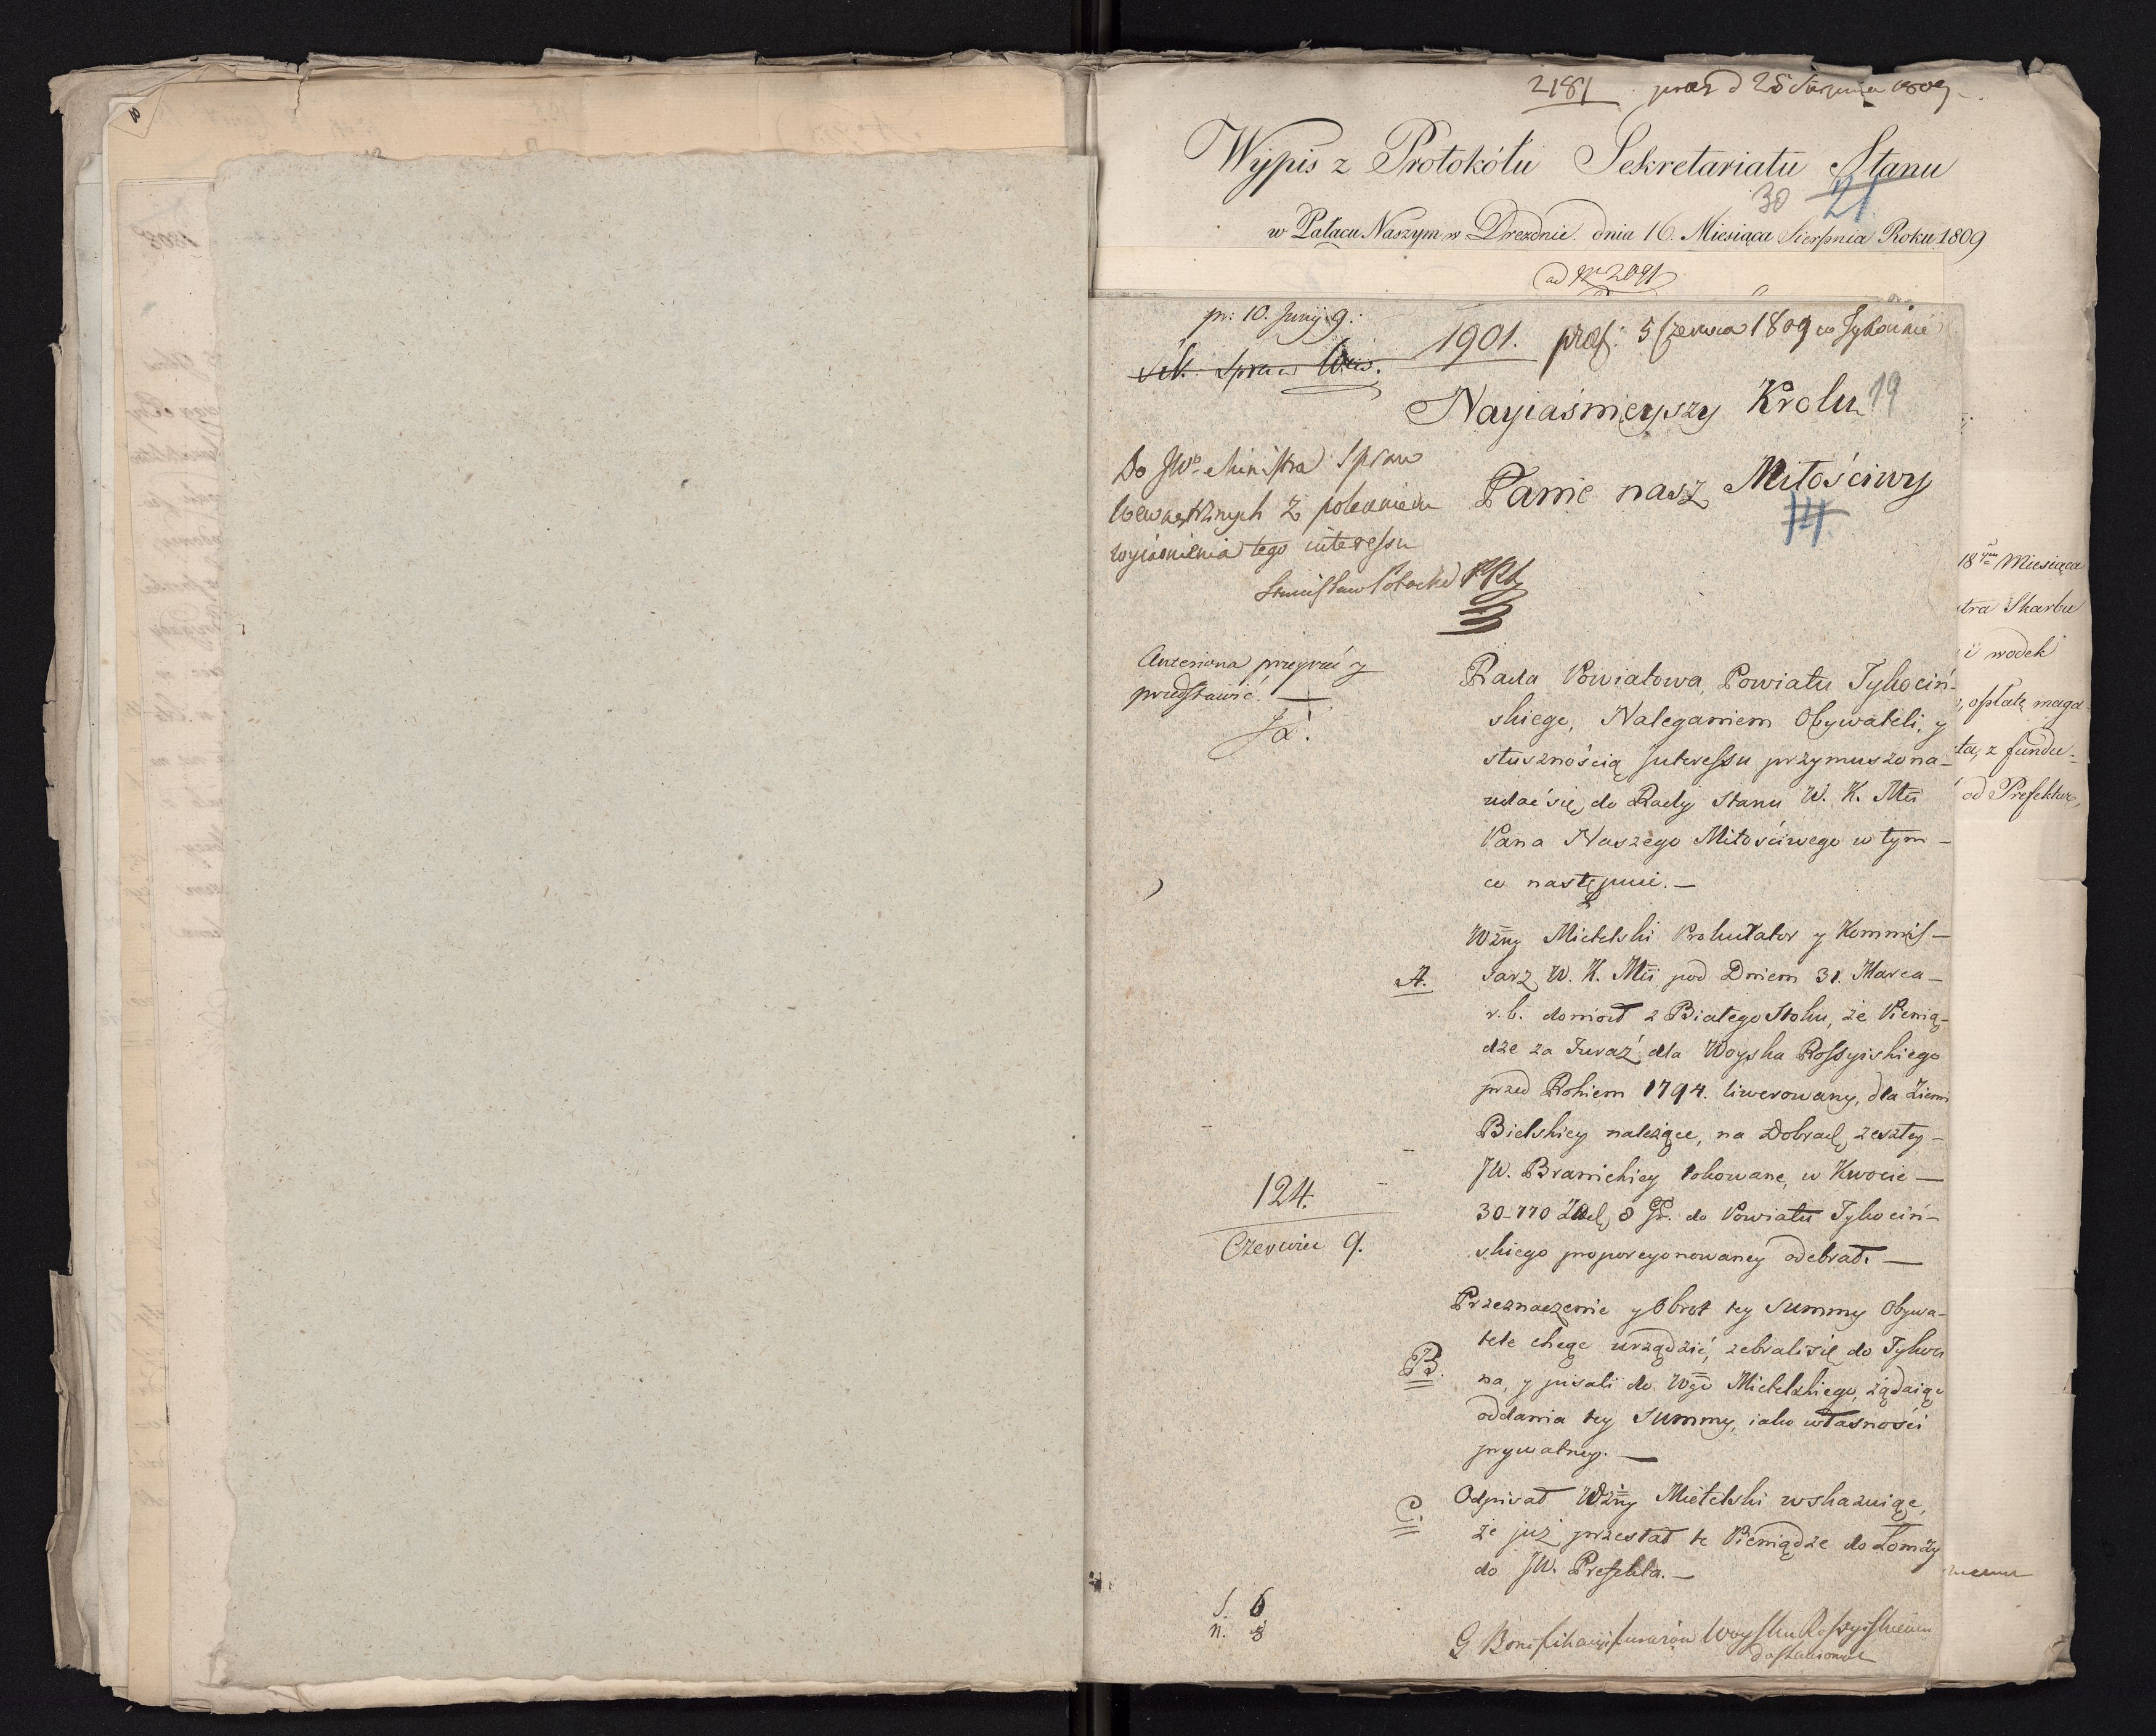 2181 praes d 25 Sierpnia 1809
Wypis z Protokółu Sekretariatu Stanu
30 21
w Pałacu Naszym w Dreznie. dnia 16. Miesiąca Sierpnia Roku 1809
ad N 2091
pr: 10. Junij 9.:
1901. praes: 5 Czerwca 1809 w
Spraw Wew.
Nayiaśnieyszy Krolu 19
Panie nasz Miłościwy
14
Do JWo Ministra Spraw
Wewnętrznych z poleceniem
wyiaśnienia tego interessu
Stanisław Potocki PRS
przeyrzeć y
przedstawić. —
Rada Powiatowa, Powiatu Tykociń-
skiego, Naleganiem Obywateli, y
słusznością Interessu przymuszona-
udać się do Rady Stanu W. K. Mci
Pana Naszego Miłościwego w tym -
co następuie. —
Wżny Mielelski Prokurator y Kommis-
A. sarz W. K. Mci pod Dniem 31. Marca -
r. b. doniosł z Białego Stoku, że Pienią-
dze za Furaż dla Woyska Rossyiskiego
przed Rokiem 1794. liwerowany, dla Ziemi
Bielskiey należące, na Dobrach zeszłey -
JW. Branickiey lokowane, w Kwocie —
30-770 8 Gr. do Powiatu Tykociń-
skiego proporcyonowaney odebrał. —
124.
Czerwiec 9.
Przeznaczenie y Obrot tey Summy Obywa-
tele chcąc urządzić, zebrali się do Tykoci
B. na, y pisali do Wgo Mielelskiego, żądaiąc
oddania tey Summy, iako własności
prywatney. —
C. Odpisał Wżny Mielelski wskazuiąc,
że już przesłał te Pieniądze do Łomży
do JW. Prefekta. —
S. 6
n. 3
G Bonifikacyi furażow Woysku Rossyiskiemu
dostawionych
18 Miesiąca
tra Skarbu
i wodek
, opłatę maga-
ta, z fundu-
od Prefektur,